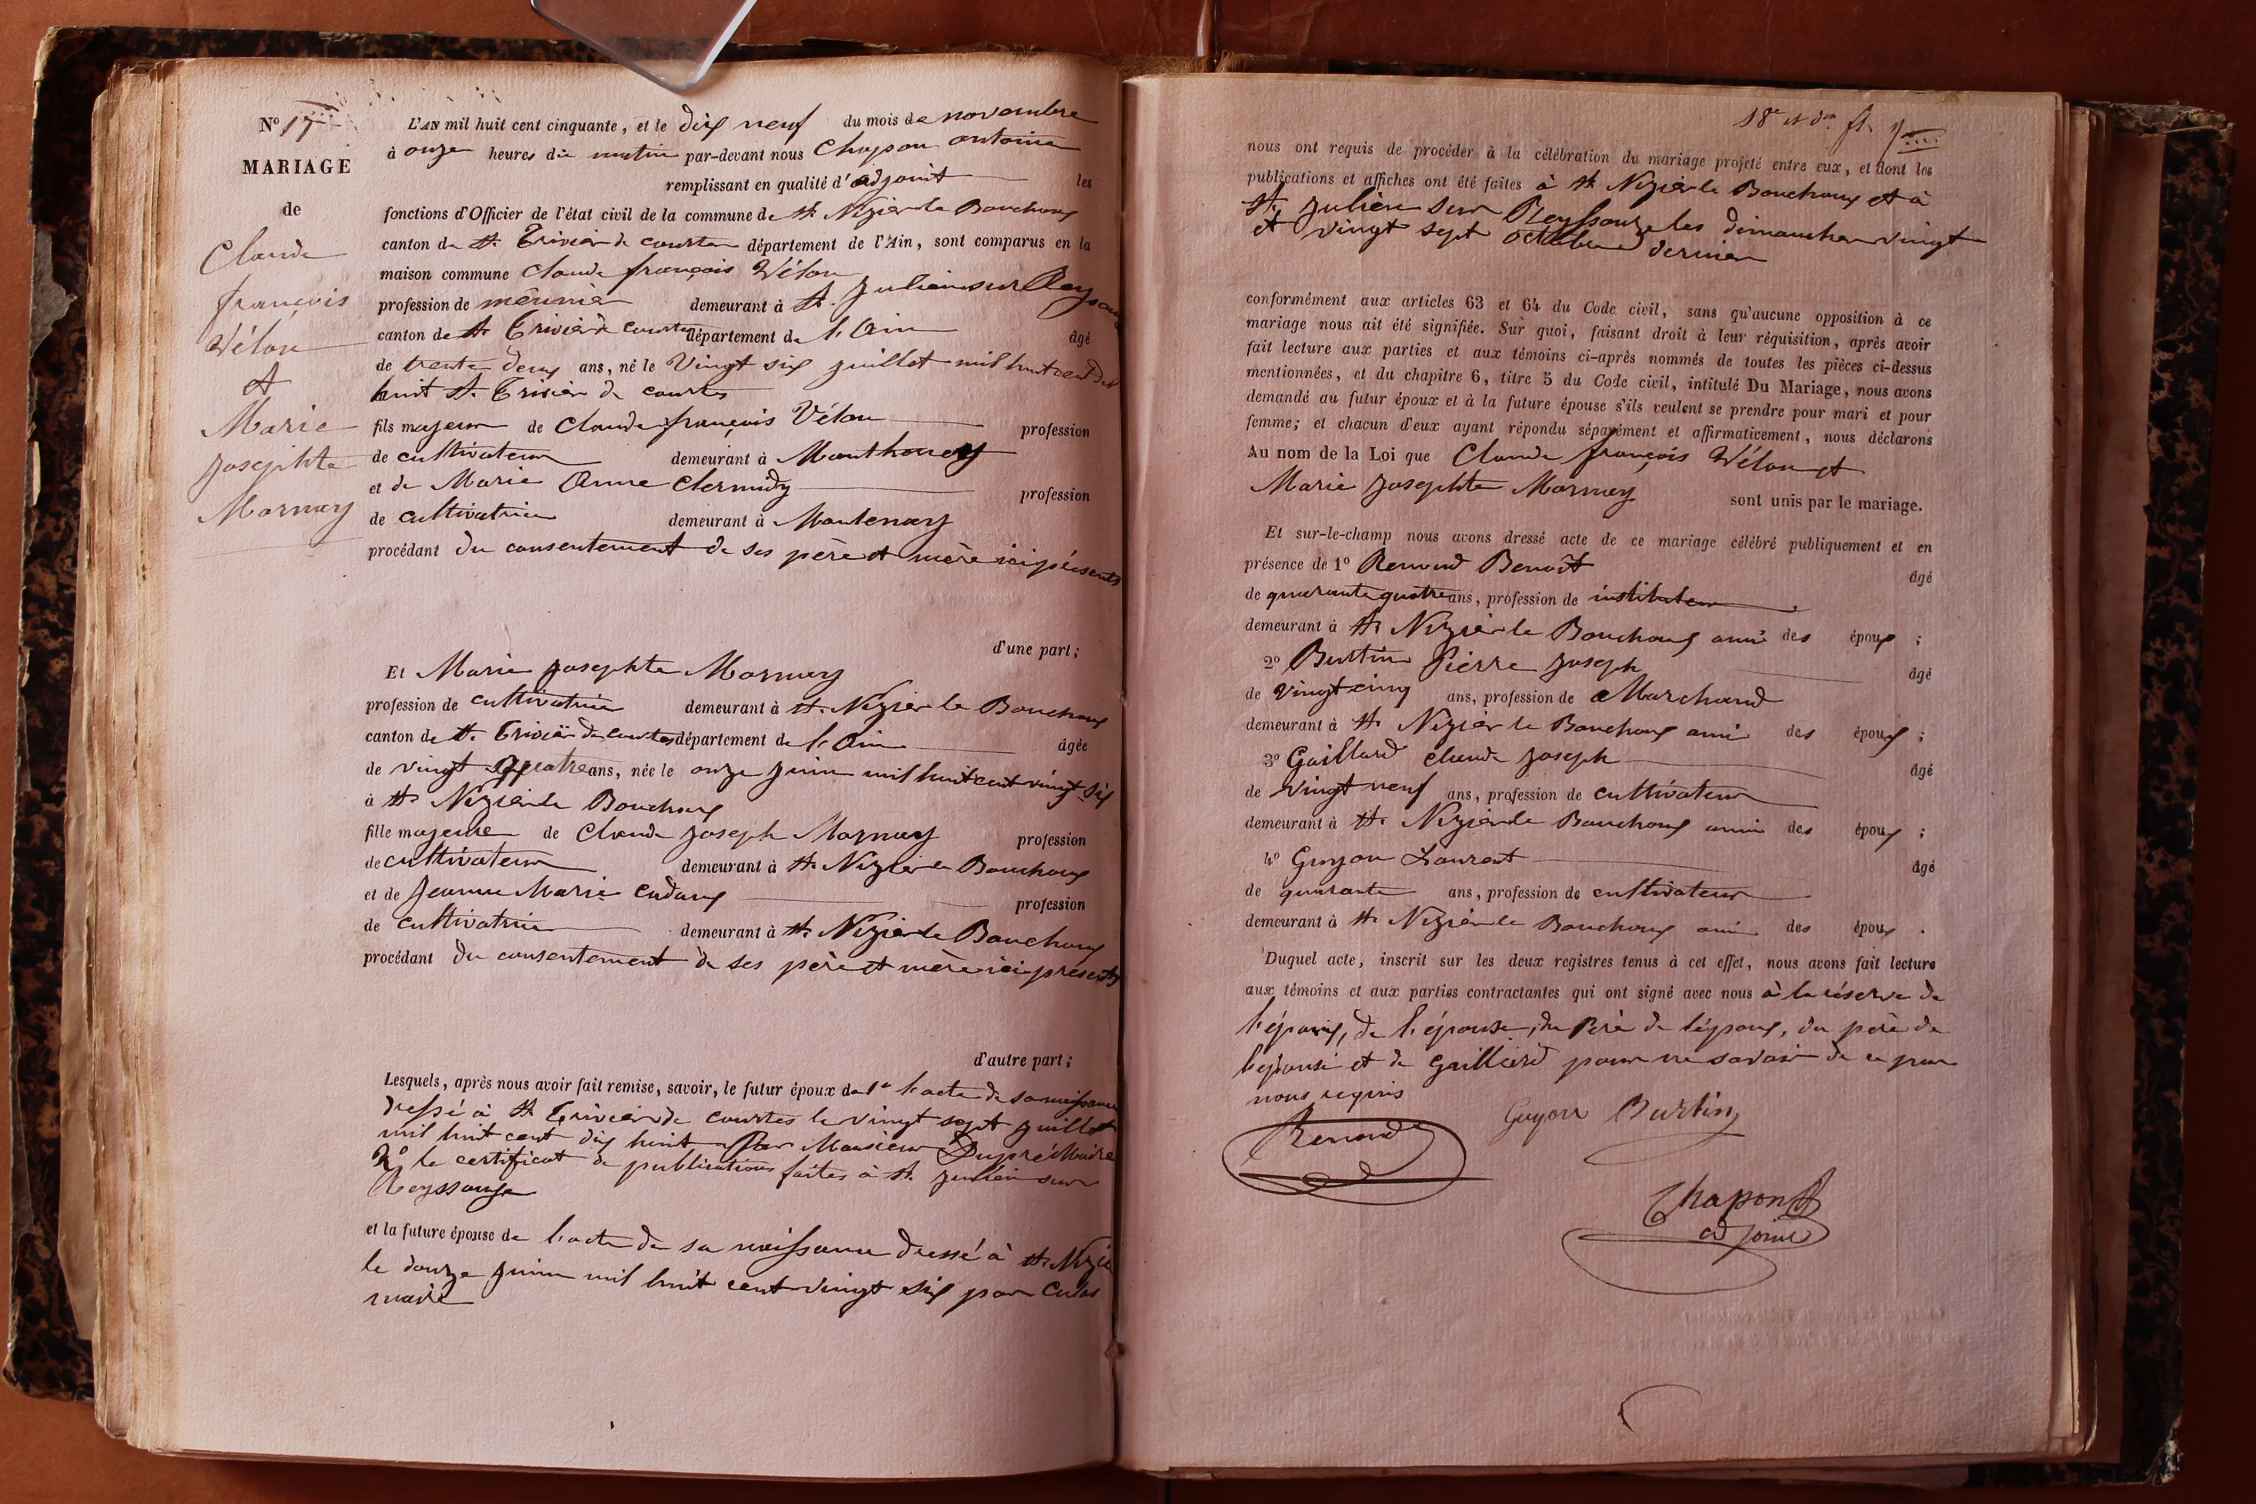 N° 17
MARIAGE
de
Claude
françois
Vélon
et
Marie
Josephte
Mornay
L'AN mil huit cent cinquante, et le dix neuf du mois de novembre
à onze heures du matin par-devant nous Chapon antoine
remplissant en qualité d'adjoint les
fonctions d'Officier de l'état civil de la commune de St Nizier le Bouchoux
canton de St Trivier de courtes département de l'Ain, sont comparus en la
maison commune Claude françois Vélon
profession de meunier demeurant à St Julien sur Reyssouze
canton de St Trivier de Courtes département de l'Ain âgé
de trente deux ans, né le Vingt six juillet mil huit cent dix
huit St Trivier de courtes
fils majeur de Claude françois Vélon profession
de cultivateur demeurant à
et de Marie Anne Clermidy profession
de cultivatrice demeurant à
procédant du consentement de ses père et mère ici présents
d'une part;
Et Marie Josephte Mornay
profession de cultivatrice demeurant à St Nizier le Bouchoux
canton de St Trivier de courtes département de l'Ain âgée
de vingt quatre ans, née le onze juin mil huit cent vingt six
à St Nizier le Bouchoux
fille majeure de Claude Joseph Mornay profession
de cultivateur demeurant à St Nizier le Bouchoux
et de Jeanne Marie profession
de cultivatrice demeurant à St Nizier le Bouchoux
procédant du consentement de ses père et mère ici présents
d'autre part;
Lesquels, après nous avoir fait remise, savoir, le futur époux de 1° l'acte de sa naissance
dressé à St Trivier de courtes le vingt sept juillet
mil huit cent dix huit Par Monsieur Dupré Maire
2° le certificat de publications faites à St Julien sur
Reyssouze
et la future épouse de l'acte de sa naissance dressé à St Nizier
le douze juin mil huit cent vingt six par
maire
nous ont requis de procéder à la célébration du mariage projeté entre eux, et dont les
publications et affiches ont été faites à St Nizier le Bouchoux et à
St Julien sur Reyssouze les dimanches vingt
et vingt sept octobre dernier
conformément aux articles 63 et 64 du Code civil, sans qu'aucune opposition à ce
mariage nous ait été signifiée. Sur quoi, faisant droit à leur réquisition, après avoir
fait lecture aux parties et aux témoins ci-après nommés de toutes les pièces ci-dessus
mentionnées, et du chapitre 6, titre 5 du Code civil, intitulé Du Mariage, nous avons
demandé au futur époux et à la future épouse s'ils veulent se prendre pour mari et pour
femme; et chacun d'eux ayant répondu séparément et affirmativement, nous déclarons
Au nom de la Loi que Claude françois Vélon et
Marie Josephte Mornay sont unis par le mariage.
Et sur-le-champ nous avons dressé acte de ce mariage célébré publiquement et en
présence de 1° Renaud Benoît âgé
de quarante quatre ans, profession de instituteur
demeurant à St Nizier le Bouchoux ami des époux;
2° Burtin Pierre Joseph âgé
de Vingt cinq ans, profession de Marchand
demeurant à St Nizier le Bouchoux ami des époux;
3° Gaillard claude Joseph âgé
de Vingt neuf ans, profession de cultivateur
demeurant à St Nizier le Bouchoux ami des époux;
4° Guyon Laurent âgé
de quarante ans, profession de cultivateur
demeurant à St Nizier le Bouchoux ami des époux.
Duquel acte, inscrit sur les deux registres tenus à cet effet, nous avons fait lecture
aux témoins et aux parties contractantes qui ont signé avec nous à la réserve de
l'époux, de l'épouse, du Père de l'époux, du père de
l'épouse et de Gaillard pour ne savoir de ce par
nous requis
Renaud Guyon Burtin
Chapon
adjoint